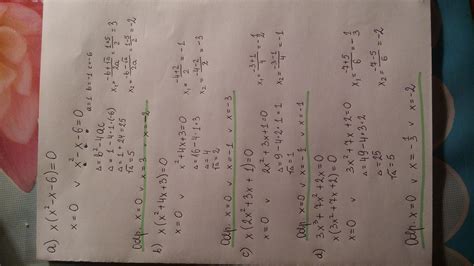 a) x(x²-x-6)=0
x=0 v x²-x-6=0 a=1 b=-1 c=-6
Δ=b²-4ac
Δ=1-4·1·(-6) x₁=(-b+√Δ)/2a=(1+5)/2=3
Δ=1+24=25
√Δ=5 x₂=(-b-√Δ)/2a=(1-5)/2=-2
Odp. x=0 v x=3 v x=-2
b) x(x²+4x+3)=0
x=0 v x²+4x+3=0
Δ=16-4·1·3 x₁=(-4+2)/2=-1
Δ=4
√Δ=2 x₂=(-4-2)/2=-3
Odp x=0 v x=-1 v x=-3
c) x(2x²+3x+1)=0
x=0 v 2x²+3x+1=0
Δ=9-4·2·1 x₁=(-3+1)/4=-1/2
Δ=1
√Δ=1 x₂=(-3-1)/4=-1
Odp x=0 v x=-1/2 v x=-1
d) 3x³+7x²+2x=0
x(3x²+7x+2)=0
x=0 v 3x²+7x+2=0
Δ=49-4·3·2 x₁=(-7+5)/6=-1/3
Δ=25
√Δ=5 x₂=(-7-5)/6=-2
Odp x=0 v x=-1/3 v x=-2